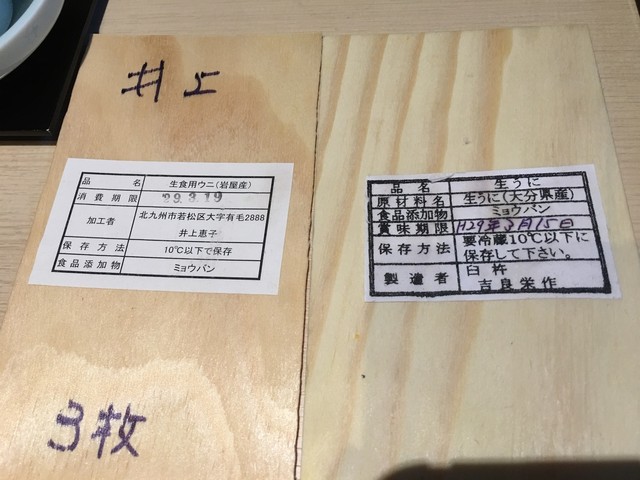 井上
品名 生食用ウニ(岩屋産)
消費期限 29.3.19
加工者 北九州市若松区大字有毛2888
井上恵子
保存方法 10℃以下で保存
食品添加物 ミョウバン
3枚
品名 生うに
原材料名 生うに(大分県産)
食品添加物 ミョウバン
賞味期限 H29年3月15日
保存方法 要冷蔵10℃以下に
保存して下さい。
製造者 臼杵
吉良栄作